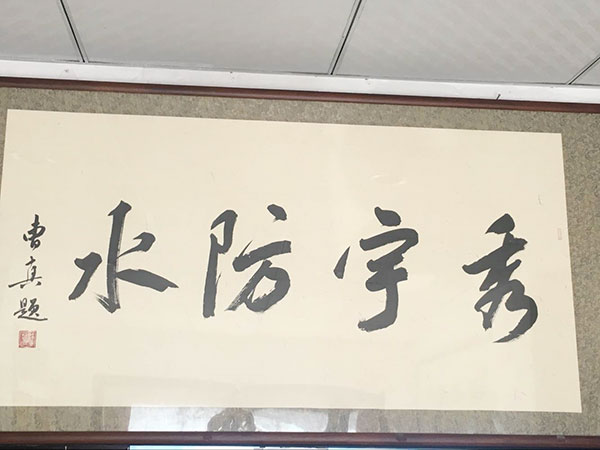 秀宇防水
曹真题